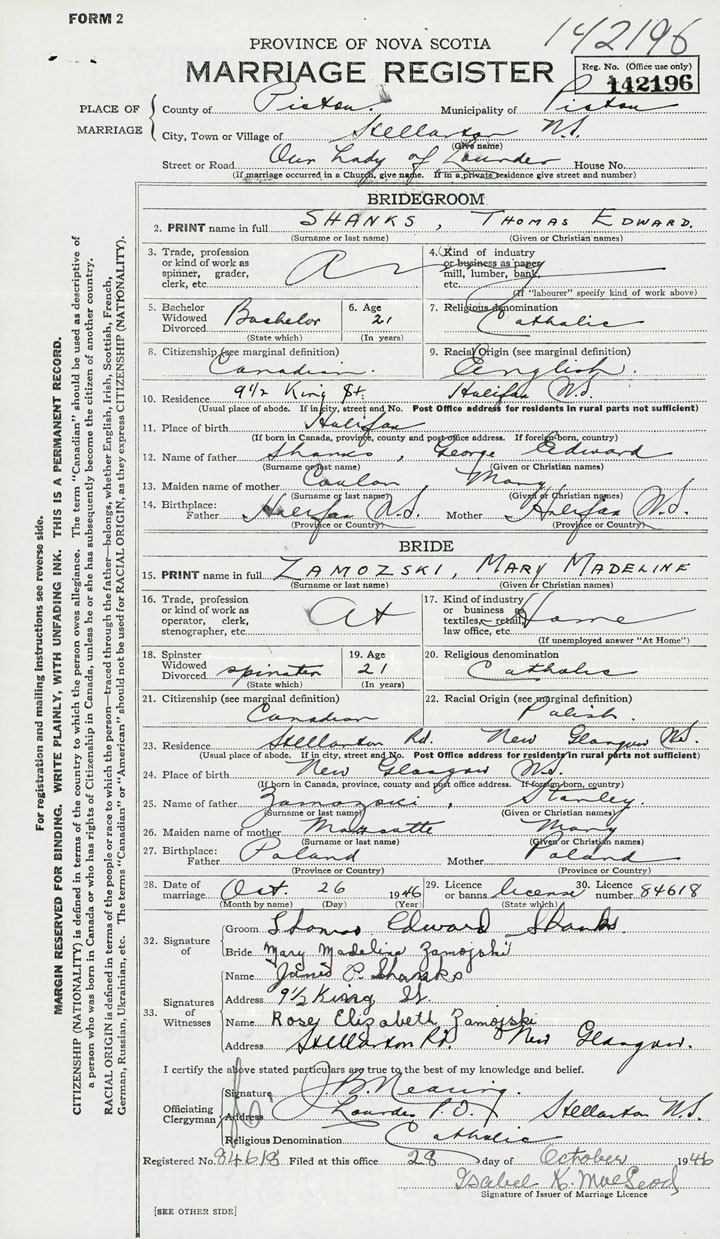 FORM 2
142196
PROVINCE OF NOVA SCOTIA
MARRIAGE REGISTER
Reg. No. (Office use only)
142196
PLACE OF MARRIAGE
County of Pictou. Municipality of Pictou
City, Town or Village of Stellarton N.S.
(Give name)
Street or Road Our Lady of Lourdes House No.
(If marriage occurred in a Church, give name. If in a private residence give street and number)
BRIDEGROOM
2. PRINT name in full SHANKS, THOMAS EDWARD.
(Surname or last name) (Given or Christian names)
3. Trade, profession or kind of work as spinner, grader, clerk, etc. 4. Kind of industry or business as paper mill, lumber, bank, etc.
Army
(If "labourer" specify kind of work above)
5. Bachelor Widowed Divorced Bachelor 6. Age 21 7. Religious denomination Catholic
(State which) (In years)
8. Citizenship (see marginal definition) Canadian. 9. Racial Origin (see marginal definition) English.
10. Residence 9½ King St. Halifax N.S.
(Usual place of abode. If in city, street and No. Post Office address for residents in rural parts not sufficient)
11. Place of birth Halifax
(If born in Canada, province, county and post office address. If foreign born, country)
12. Name of father Shanks, George Edward
(Surname or last name) (Given or Christian names)
13. Maiden name of mother Mary
(Surname or last name) (Given or Christian names)
14. Birthplace: Father Halifax N.S. Mother Halifax N.S.
(Province or Country) (Province or Country)
BRIDE
15. PRINT name in full ZAMOZSKI, MARY MADELINE
(Surname or last name) (Given or Christian names)
16. Trade, profession or kind of work as operator, clerk, stenographer, etc. At 17. Kind of industry or business as textiles, retail, law office, etc. Home
(If unemployed answer "At Home")
18. Spinster Widowed Divorced spinster 19. Age 21 20. Religious denomination Catholic
(State which) (In years)
21. Citizenship (see marginal definition) Canadian 22. Racial Origin (see marginal definition) Polish.
23. Residence Stellarton Rd. New Glasgow N.S.
(Usual place of abode. If in city, street and No. Post Office address for residents in rural parts not sufficient)
24. Place of birth New Glasgow N.S.
(If born in Canada, province, county and post office address. If foreign born, country)
25. Name of father Zamozski, Stanley.
(Surname or last name) (Given or Christian names)
26. Maiden name of mother Mary
(Surname or last name) (Given or Christian names)
27. Birthplace: Father Poland Mother Poland
(Province or Country) (Province or Country)
28. Date of marriage Oct. 26 1946 29. Licence or banns license 30. Licence number 84618
(Month by name) (Day) (Year) (State which)
32. Signature of
Groom Thomas Edward Shanks.
Bride Mary Madeline Zamojski
33. Signatures of Witnesses
Name P. Shanks
Address 9½ King St.
Name Rose Elizabeth Zamojski
Address Stellarton Rd. New Glasgow.
I certify the above stated particulars are true to the best of my knowledge and belief.
Officiating Clergyman
Signature J. B. Nearing.
Address Lourdes P.O. Stellarton N.S.
Religious Denomination Catholic
Registered No. 84618 Filed at this office 28 day of October 1946
Isabel K. MacLeod
Signature of Issuer of Marriage Licence
[SEE OTHER SIDE]
For registration and mailing instructions see reverse side.
MARGIN RESERVED FOR BINDING. WRITE PLAINLY, WITH UNFADING INK. THIS IS A PERMANENT RECORD.
CITIZENSHIP (NATIONALITY) is defined in terms of the country to which the person owes allegiance. The term "Canadian" should be used as descriptive of
a person who was born in Canada or who has rights of Citizenship in Canada, unless he or she has subsequently become the citizen of another country.
RACIAL ORIGIN is defined in terms of the people or race to which the person—traced through the father—belongs, whether English, Irish, Scottish, French,
German, Russian, Ukrainian, etc. The terms "Canadian" or "American" should not be used for RACIAL ORIGIN, as they express CITIZENSHIP (NATIONALITY).